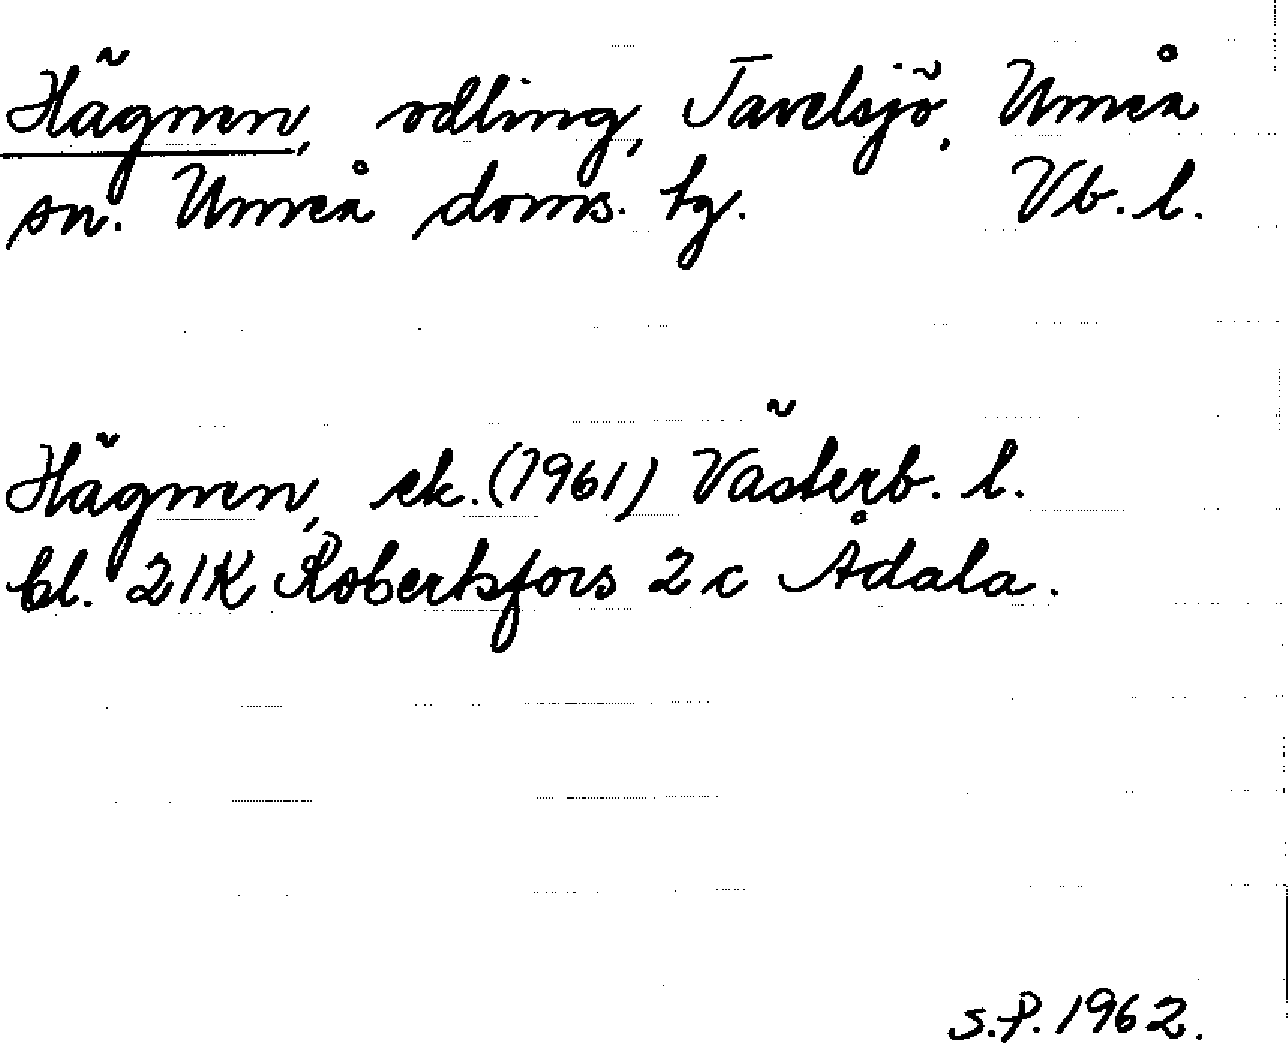 Hägnen, odling, Tavelsjö, Umeå
sn. Umeå doms. hg. Vb. l.
Hägnen, ek. (1961) Västerb. l.
bl. 21K Robertsfors 2 c Ådala.
S.P. 1962.